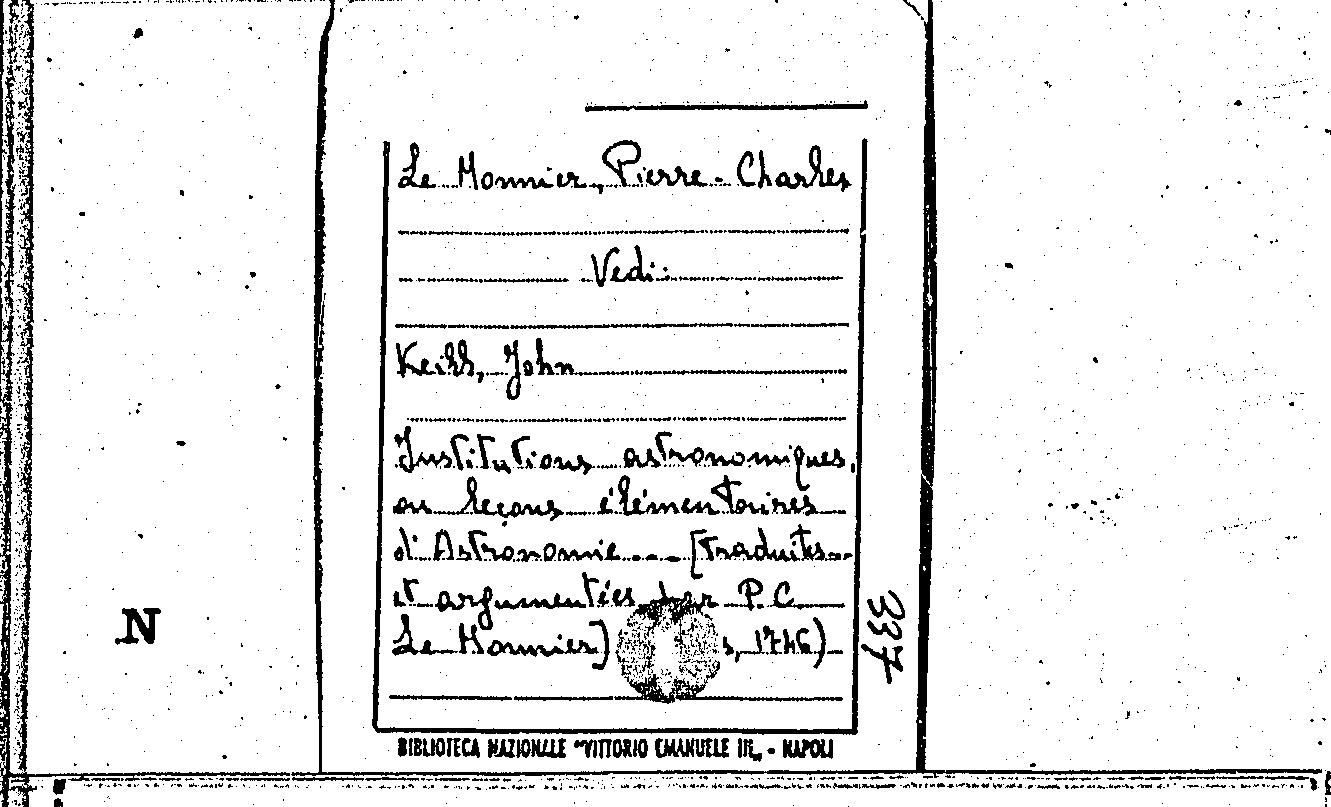 Le Monnier, Pierre-Charles
Vedi:
Keill, John
Institutions astronomiques,
ou leçons élémentaires
d'Astronomie... [traduites...
et argumentées par P.C.
Le Monnier] s, 1746)
337
N
BIBLIOTECA NAZIONALE "VITTORIO EMANUELE III„ - NAPOLI